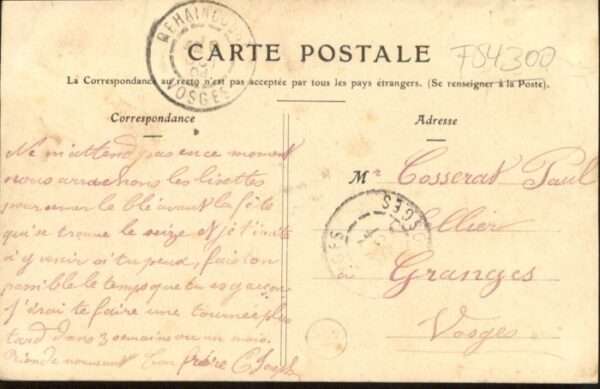 CARTE POSTALE
754300
La Correspondance au recto n'est pas acceptée par tous les pays étrangers. (Se renseigner à la Poste).
VOSGES
Correspondance
Ne m'attend pas en ce moment
nous arrachons les
pour semer le blé avant la fête
qui se trouve le seize Et je t'invite
à y venir si tu peux, fais ton
possible le temps que tu es garçon
J'irai te faire une tournée plus
tard dans 3 semaines ou un mois.
Rien de nouveau ton frère C Joseph
Adresse
Mr Cosserat Paul
à Granges
Vosges